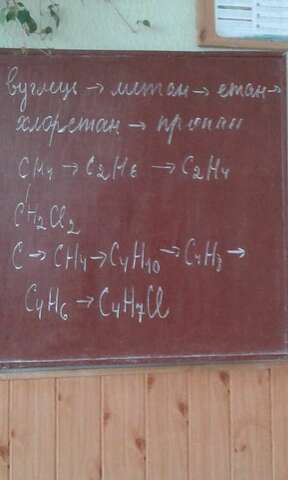 вуглець → метан → етан →
хлоретан → пропан
CH4 → C2H6 → C2H4
CH2Cl2
C → CH4 → C4H10 → C4H8 →
C4H6 → C4H7Cl